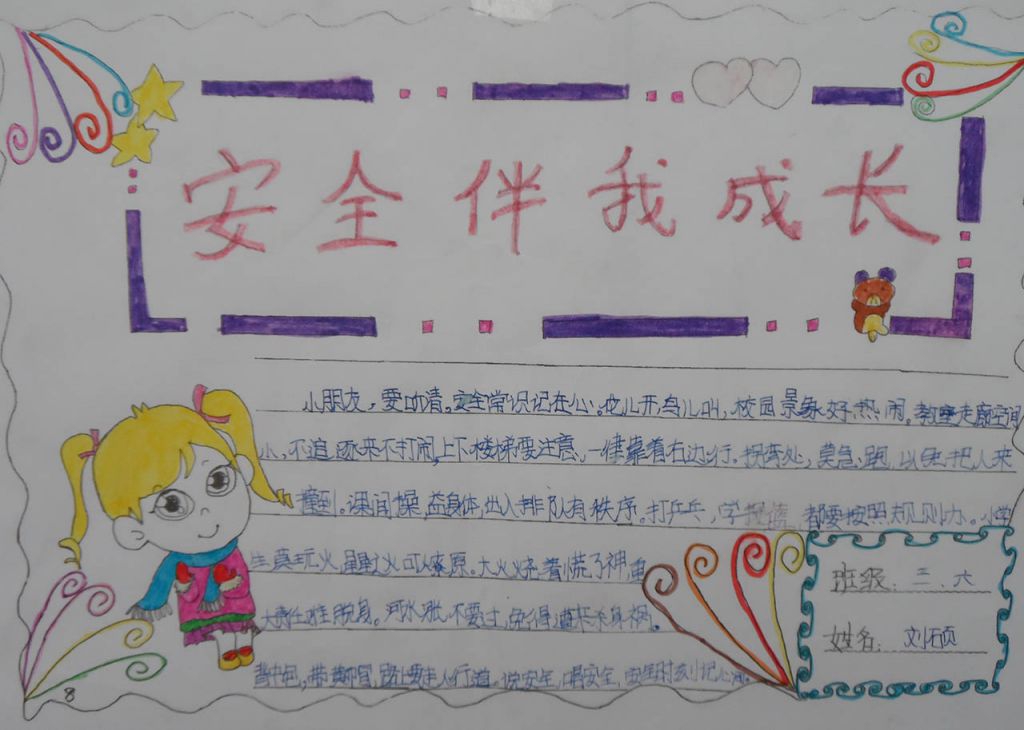 安全伴我成长
小朋友,要听清。安全常识记在心。花儿开,鸟儿叫,校园景象好热闹。教室走廊空间
小,不追逐来不打闹,上下楼梯要注意,一律靠着右边行。拐弯处,莫急跑,以免把人来
撞到。课间操,益身体,出入排队有秩序。打乒乓,学 都要按照规则办。小学
生莫玩火,星星之火可以燎原。大火烧着慌了神,
大责任难脱身。河水涨,不要过,免得遭来杀身祸。
带黄帽,路上要走人行道。说安全,唱安全,安全时刻记心间。
班级:三、六
姓名:刘硕
8